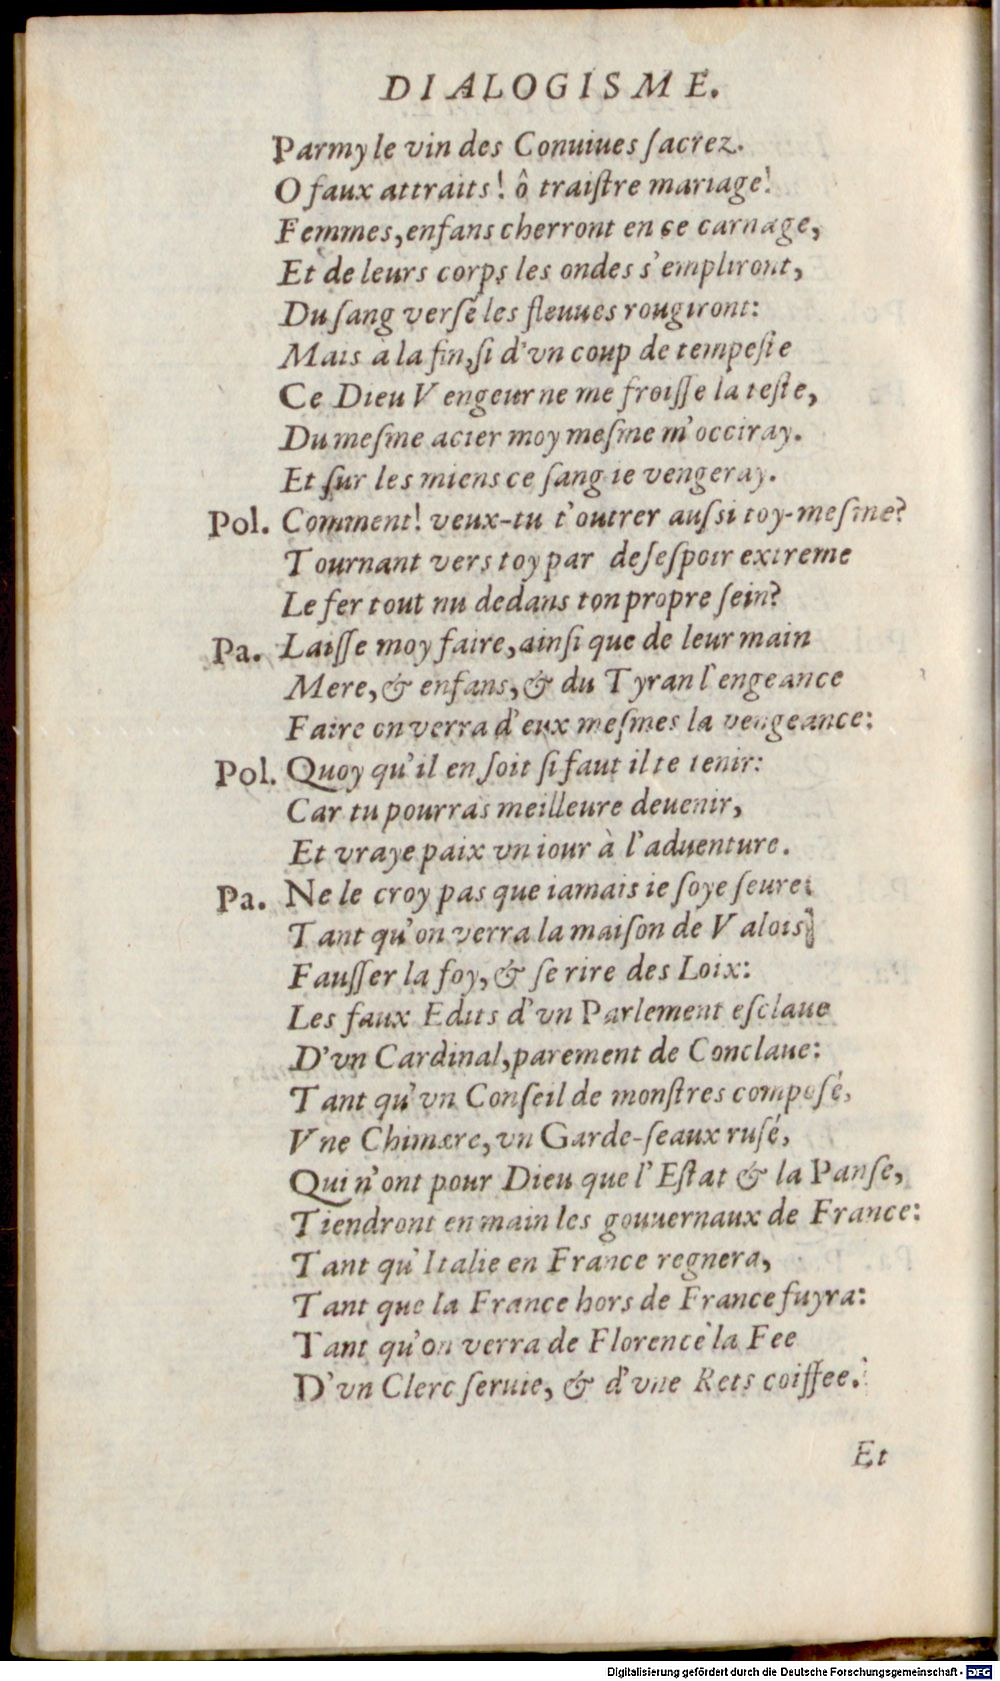 DIALOGISME.
Parmy le vin des Conuiues ſacrez.
O faux attraits! ô traiſtre mariage!
Femmes, enfans cherront en ce carnage,
Et de leurs corps les ondes s'empliront,
Du ſang verſé les fleuues rougiront:
Mais à la fin, ſi d'vn coup de tempeſte
Ce Dieu Vengeur ne me froiſſe la teſte,
Du meſme acier moy meſme m'occiray.
Et ſur les miens ce ſang ie vengeray.
Pol. Comment! veux-tu t'outrer auſſi toy-meſme?
Tournant vers toy par deſeſpoir extreme
Le fer tout nu dedans ton propre ſein?
Pa. Laiſſe moy faire, ainſi que de leur main
Mere, & enfans, & du Tyran l'engeance
Faire on verra d'eux meſmes la vengeance:
Pol. Quoy qu'il en ſoit ſi faut il te tenir:
Car tu pourras meilleure deuenir,
Et vraye paix vn iour à l'aduenture.
Pa. Ne le croy pas que iamais ie ſoye ſeure:
Tant qu'on verra la maiſon de Valois
Fauſſer la foy, & ſe rire des Loix:
Les faux Edits d'vn Parlement eſclaue
D'vn Cardinal, parement de Conclaue:
Tant qu'vn Conſeil de monſtres compoſé,
Vne Chimære, vn Garde-ſeaux ruſé,
Qui n'ont pour Dieu que l'Eſtat & la Panſe,
Tiendront en main les gouuernaux de France:
Tant qu'Italie en France regnera,
Tant que la France hors de France fuyra:
Tant qu'on verra de Florence la Fee
D'vn Clerc ſeruie, & d'vne Rets coiffee.
Et
Digitalisierung gefördert durch die Deutsche Forschungsgemeinschaft - DFG